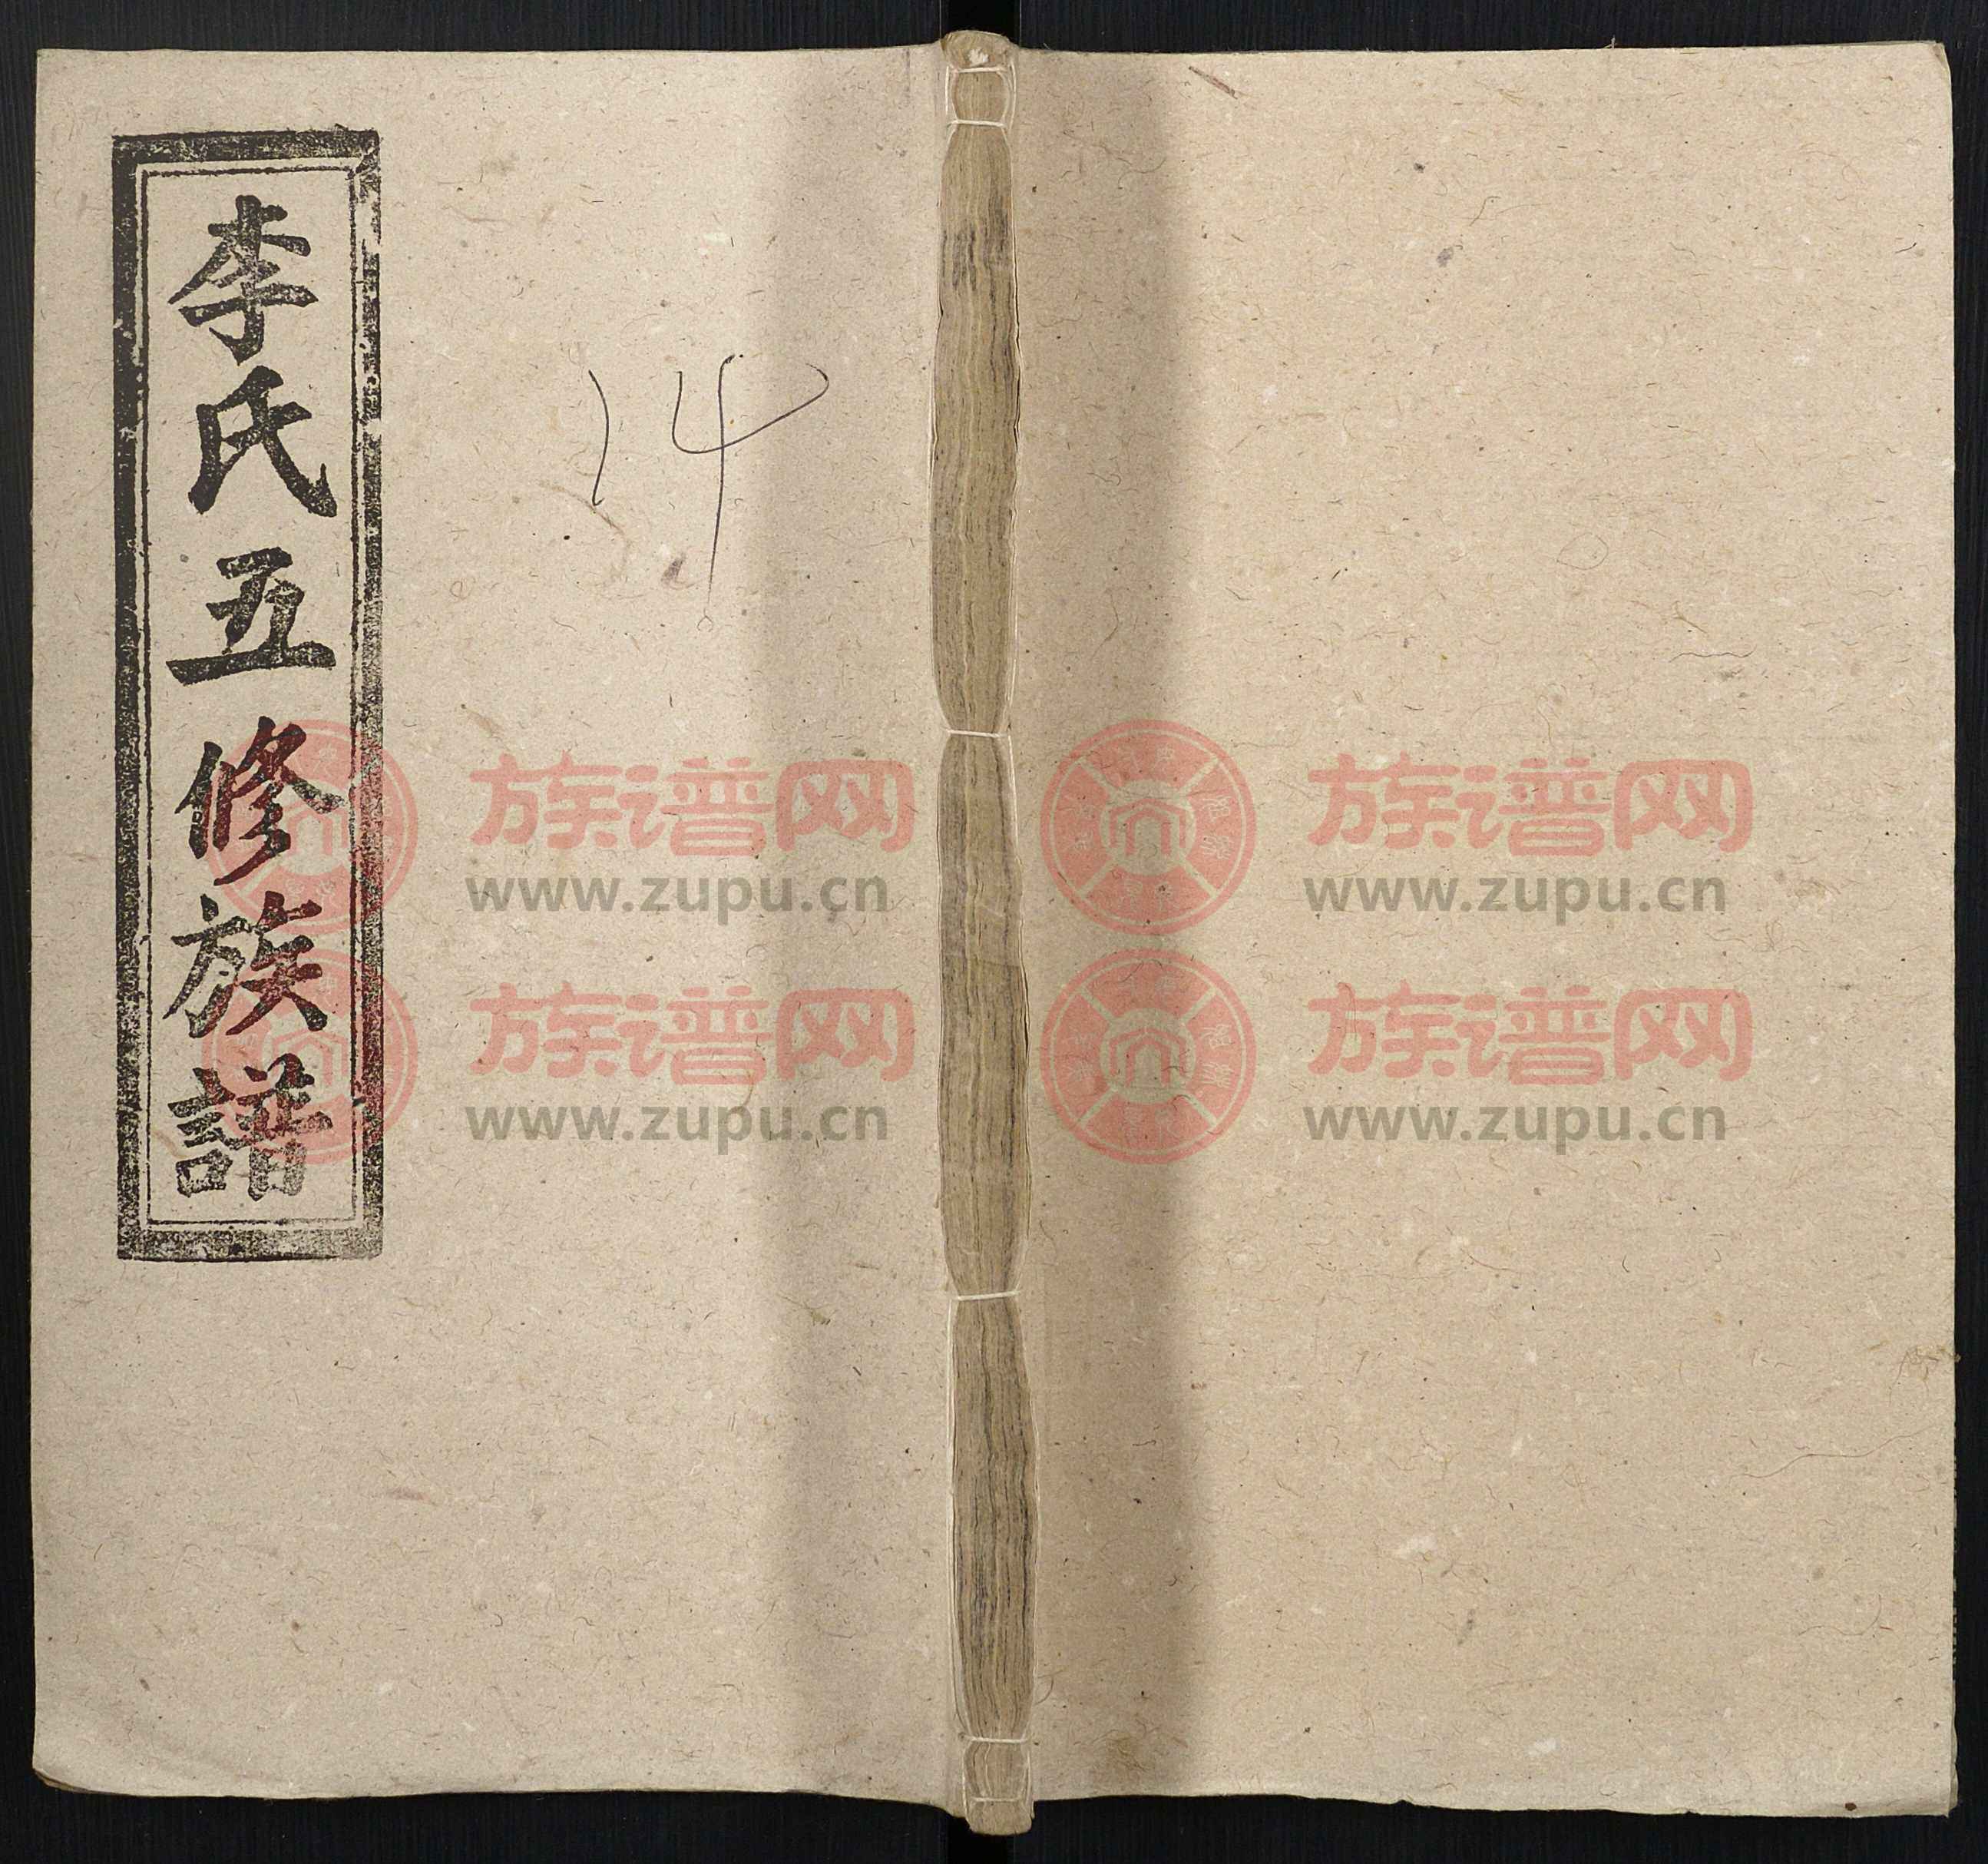 李氏五修族譜
14
族谱网 族谱网
www.zupu.cn www.zupu.cn
族谱网 族谱网
www.zupu.cn www.zupu.cn